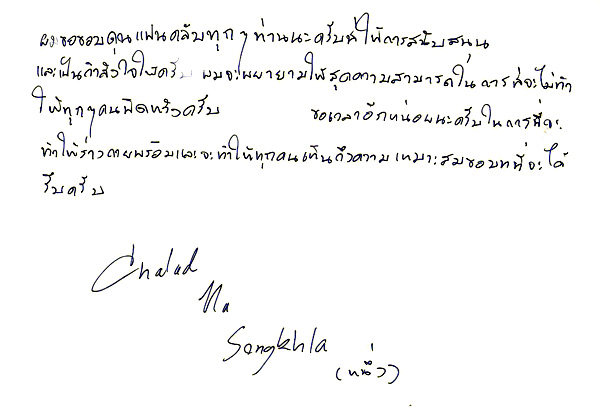 ผมขอขอบคุณแฟนคลับทุกๆท่านนะครับที่ให้การสนับสนุน
และเป็นกำลังใจให้ครับ ผมจะพยายามให้สุดความสามารถในการที่จะไม่ทำ
ให้ทุกๆคนผิดหวังครับ ขอเวลาอีกหน่อยนะครับในการที่จะ
ทำให้ร่างกายพร้อมและจะทำให้ทุกคนเห็นถึงความเหมาะสมของบทที่จะได้
รับครับ
Chalad
Na
Songkhla
(หนิ่ว)